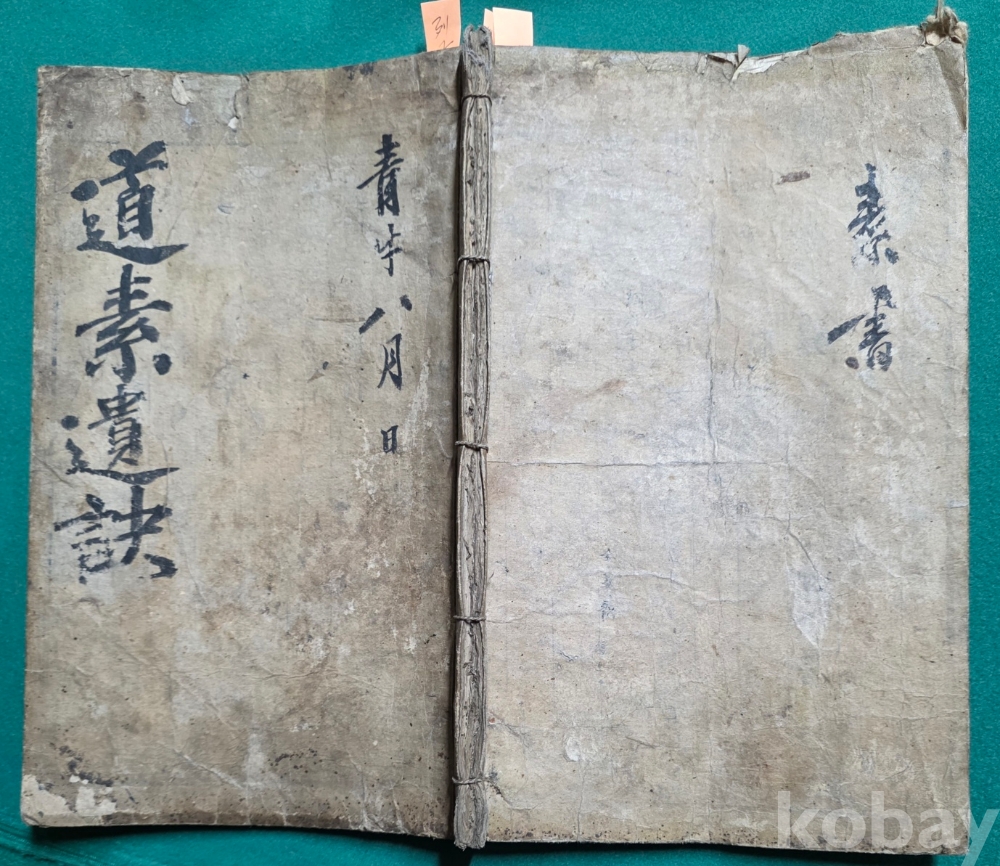 道素遺訣
青牛八月 日
素書
kobay